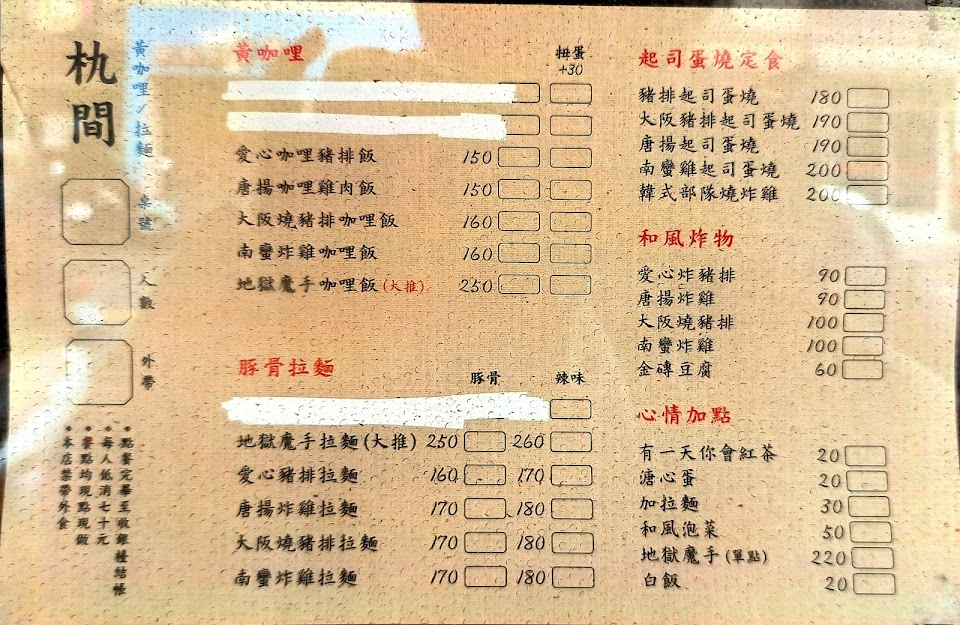 杋間
黃咖哩/拉麵
卓號
人數
外帶
*點餐完畢至收銀檯結帳
*每人低消七十元
*餐點均現點現做
*本店禁帶外食
黃咖哩
扭蛋
+30
愛心咖哩豬排飯 150
唐揚咖哩雞肉飯 150
大阪燒豬排咖哩飯 160
南蠻炸雞咖哩飯 160
地獄魔手咖哩飯(大推) 250
豚骨拉麵
豚骨 辣味
地獄魔手拉麵(大推) 250 260
愛心豬排拉麵 160 170
唐揚炸雞拉麵 170 180
大阪燒豬排拉麵 170 180
南蠻炸雞拉麵 170 180
起司蛋燒定食
豬排起司蛋燒 180
大阪豬排起司蛋燒 190
唐揚起司蛋燒 190
南蠻雞起司蛋燒 200
韓式部隊燒炸雞 200
和風炸物
愛心炸豬排 90
唐揚炸雞 90
大阪燒豬排 100
南蠻炸雞 100
金磚豆腐 60
心情加點
有一天你會紅茶 20
溏心蛋 20
加拉麵 30
和風泡菜 50
地獄魔手(單點) 220
白飯 20